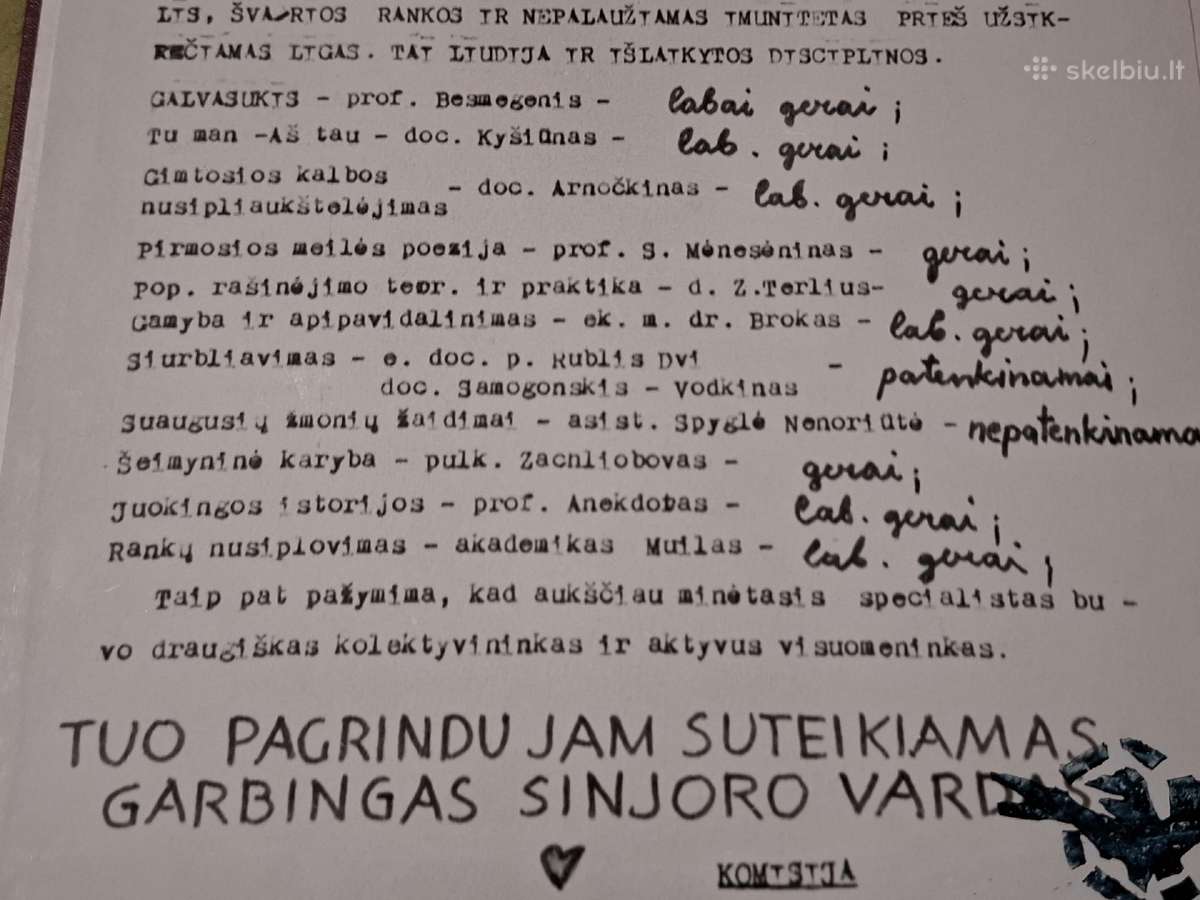 LIS, ŠVARIOS RANKOS IR NEPALAUŽIAMAS IMUNITETAS PRIEŠ UŽSIK-
REČIAMAS LIGAS. TAI LIUDIJA IR IŠLAIKYTOS DISCIPLINOS.
skelbiu.lt
GALVASUKIS - prof. Besmegenis - labai gerai;
Tu man -Aš tau - doc. Kyšiūnas - lab. gerai;
Gimtosios kalbos
nusipliaukštelėjimas - doc. Arnočkinas - lab. gerai;
Pirmosios meilės poezija - prof. S. Mėnesėninas - gerai;
Pop. rašinėjimo teor. ir praktika - d. Z.Terlius- gerai;
Gamyba ir apipavidalinimas - ek. m. dr. Brokas - lab. gerai;
Siurbliavimas - e. doc. p. Rublis Dvi
doc. Samogonskis - Vodkinas - patenkinamai;
Suaugusių žmonių žaidimai - asist. Spyglė Nenoriūtė - nepatenkinama
Šeimyninė karyba - pulk. Zacnliobovas - gerai;
Juokingos istorijos - prof. Anekdotas - lab. gerai;
Rankų nusiplovimas - akademikas Muilas - lab. gerai;
Taip pat pažymima, kad aukščiau minėtasis specialistas bu -
vo draugiškas kolektyvininkas ir aktyvus visuomeninkas.
TUO PAGRINDU JAM SUTEIKIAMAS
GARBINGAS SINJORO VARDAS
KOMISIJA